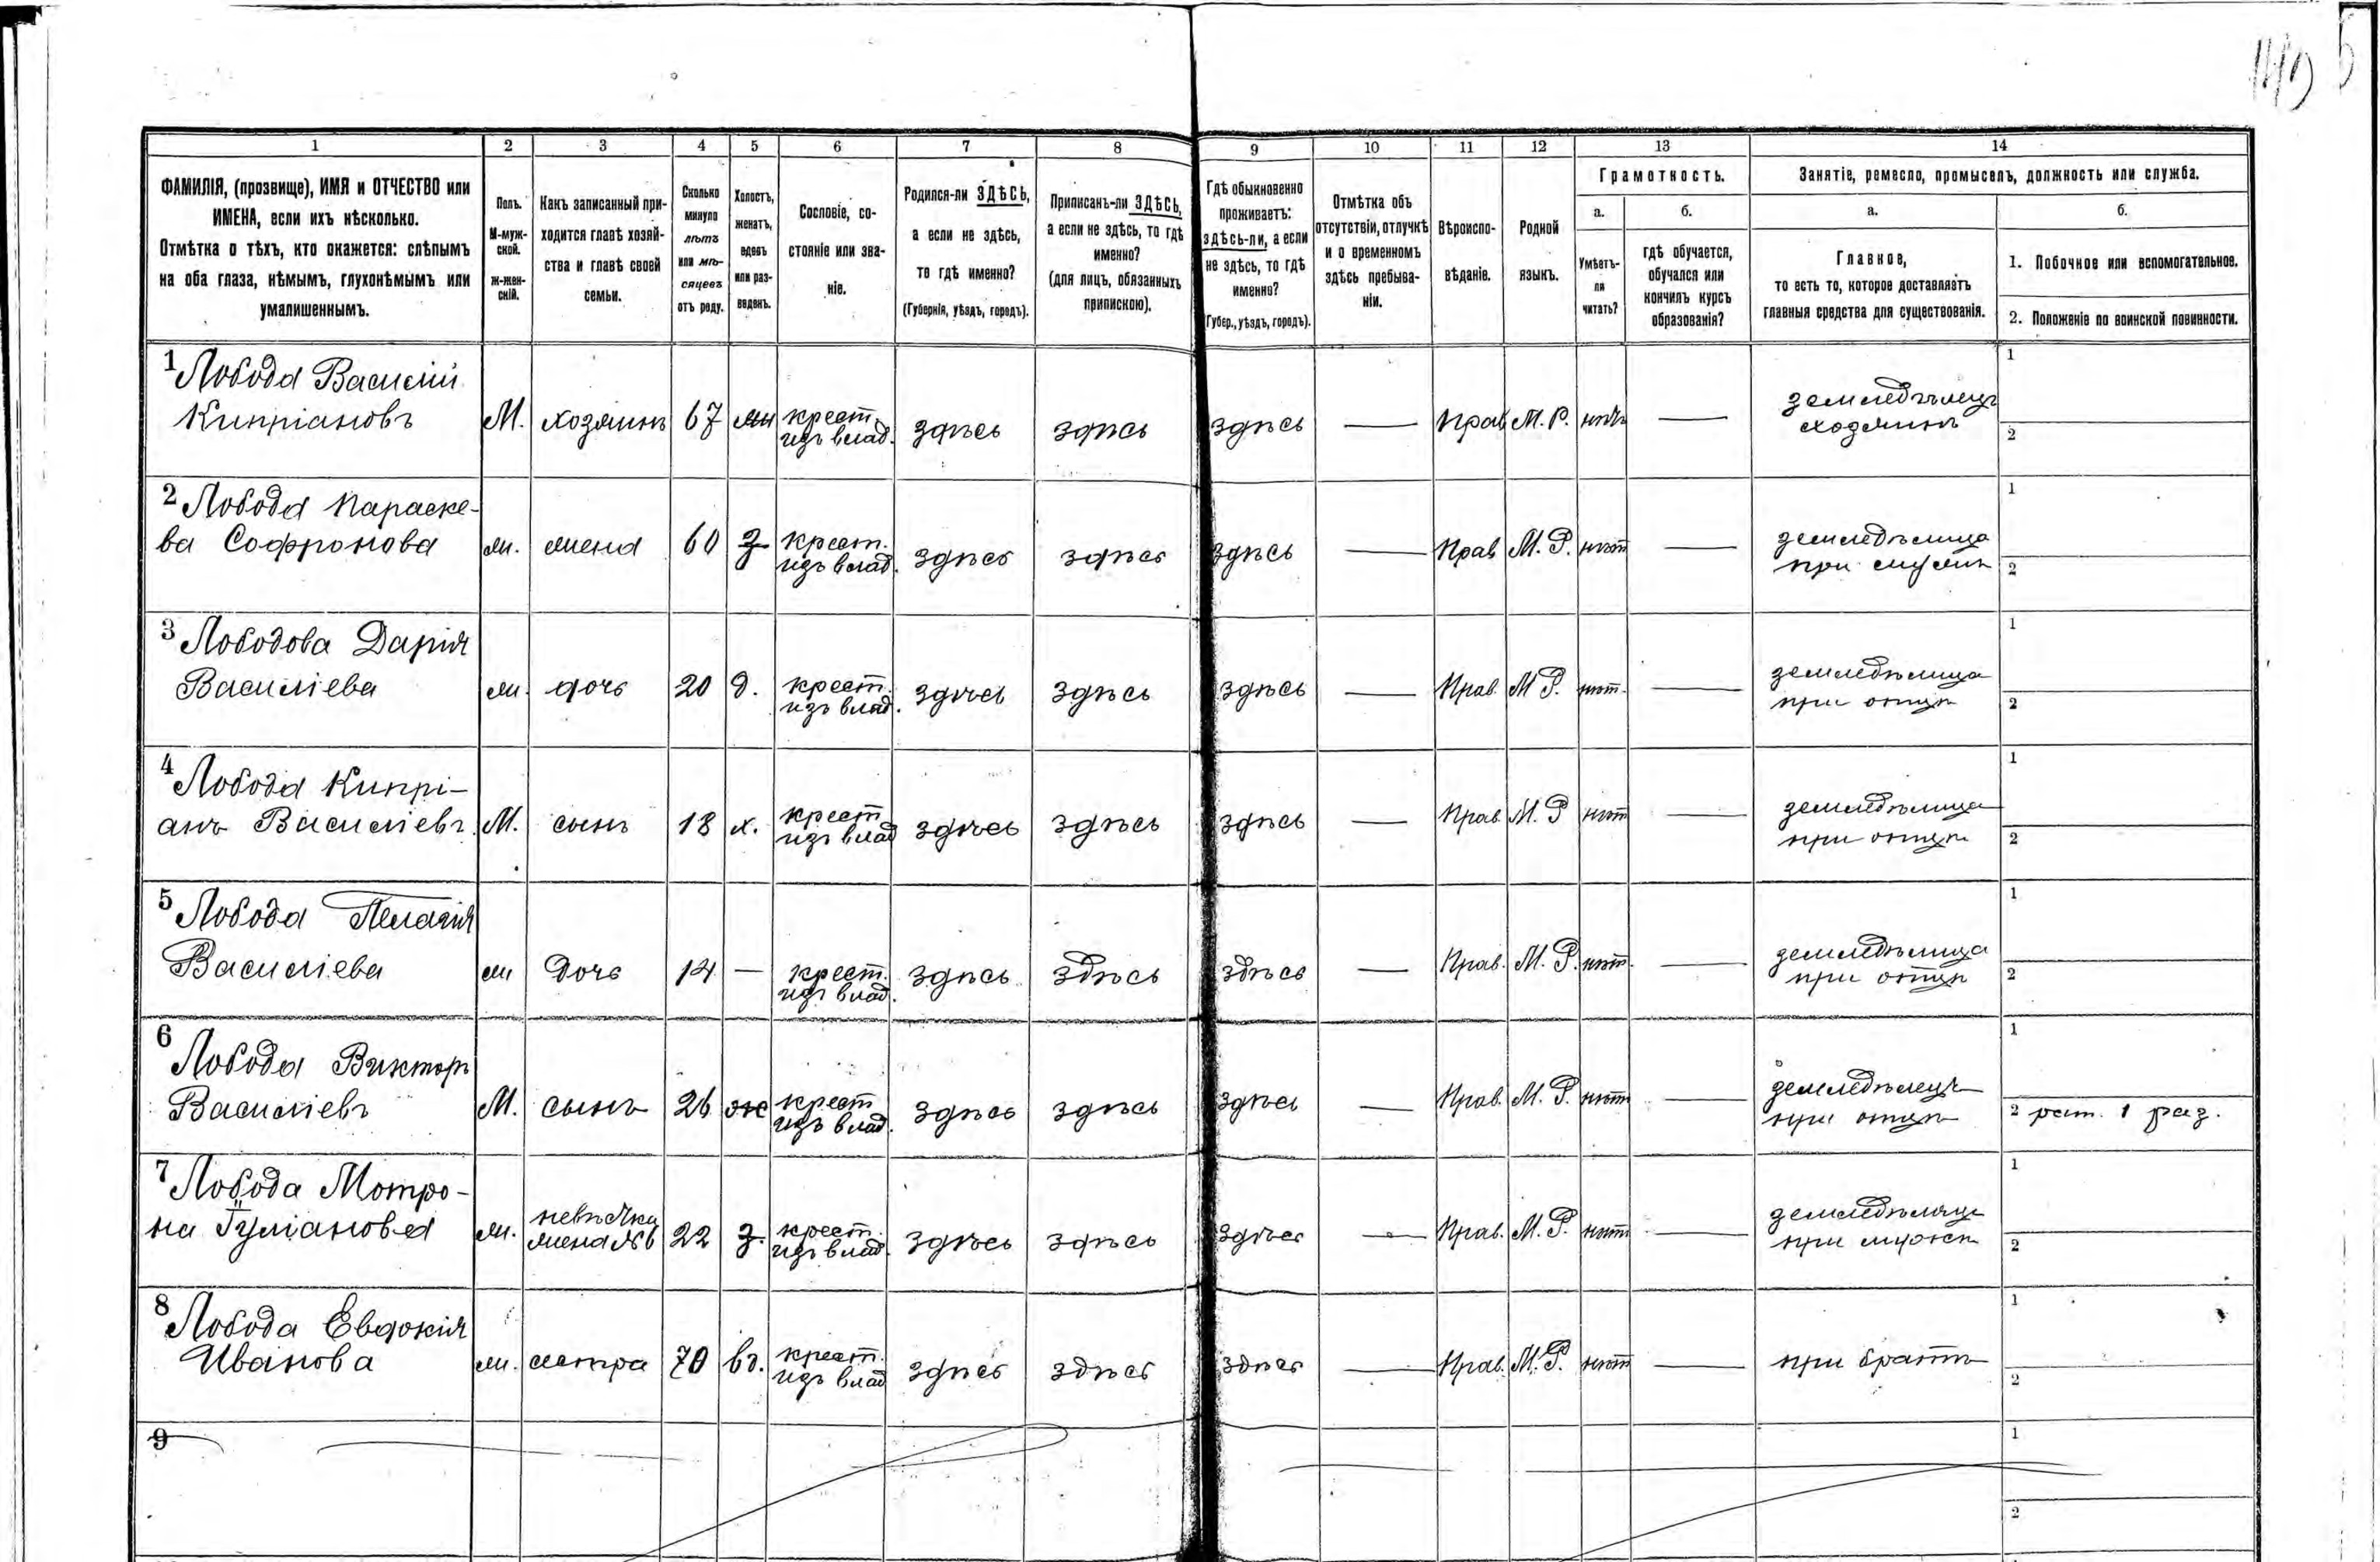 149 5
1 2 3 4 5 6 7 8 9 10 11 12 13 14
ФАМИЛІЯ, (прозвище), ИМЯ и ОТЧЕСТВО или
ИМЕНА, если ихъ нѣсколько.
Отмѣтка о тѣхъ, кто окажется: слѣпымъ
на оба глаза, нѣмымъ, глухонѣмымъ или
умалишеннымъ.
Полъ.
М-муж-
ской.
ж-жен-
скій.
Какъ записанный при-
ходится главѣ хозяй-
ства и главѣ своей
семьи.
Сколько
минуло
лѣтъ
или мѣ-
сяцевъ
отъ роду.
Холостъ,
женатъ,
вдовъ
или раз-
веденъ.
Сословіе, со-
стояніе или зва-
ніе.
Родился-ли ЗДѢСЬ,
а если не здѣсь,
то гдѣ именно?
(Губернія, уѣздъ, городъ).
Приписанъ-ли ЗДѢСЬ,
а если не здѣсь, то гдѣ
именно?
(для лицъ, обязанныхъ
припискою).
Гдѣ обыкновенно
проживаетъ:
здѣсь-ли, а если
не здѣсь, то гдѣ
именно?
(Губер., уѣздъ, городъ).
Отмѣтка объ
отсутствіи, отлучкѣ
и о временномъ
здѣсь пребыва-
ніи.
Вѣроиспо-
вѣданіе.
Родной
языкъ.
Грамотность.
а.
Умѣетъ-
ли
читать?
б.
гдѣ обучается,
обучался или
кончилъ курсъ
образованія?
Занятіе, ремесло, промыселъ, должность или служба.
а.
Главное,
то есть то, которое доставляетъ
главныя средства для существованія.
б.
1. Побочное или вспомогательное.
2. Положеніе по воинской повинности.
1 Лобода Василій
Кипріановъ М. хозяинъ 67 жн крест. изъ влад. здѣсь здѣсь здѣсь — Прав М. Р. нѣтъ — земледѣлецъ хозяинъ 1 2
2 Лобода Параске-
ва Софронова ж. жена 60 з крест. изъ влад. здѣсь здѣсь здѣсь — Прав М. Р. нѣт — земледѣлица при мужѣ 1 2
3 Лободова Дарія
Василіева ж. дочь 20 д. крест. изъ влад. здѣсь здѣсь здѣсь — Прав. М Р. нѣт. — земледѣлица при отцѣ 1 2
4 Лобода Кипрі-
анъ Василіевъ. М. сынъ 18 х. крест изъ влад здѣсь здѣсь здѣсь — Прав М. Р нѣт — земледѣлица при отцѣ 1 2
5 Лобода Пелагія
Василіева ж дочь 14 — крест. изъ влад. здѣсь здѣсь здѣсь — Прав. М. Р. нѣт. — земледѣлица при отцѣ 1 2
6 Лобода Викторъ
Василіевъ М. сынъ 26 ж крест изъ влад. здѣсь здѣсь здѣсь — Прав. М. Р. нѣт — земледѣлецъ при отцѣ 1 2 рат. 1 раз.
7 Лобода Мотро-
на Гуліанова ж. невѣстка жена №6 22 з. крест. изъ влад. здѣсь здѣсь здѣсь — Прав. М. Р. нѣт — земледѣлица при мужѣ 1 2
8 Лобода Евдокія
Иванова ж. сестра 70 вд. крест. изъ влад здѣсь здѣсь здѣсь — Прав. М. Р. нѣт — при братѣ 1 2
9 1 2